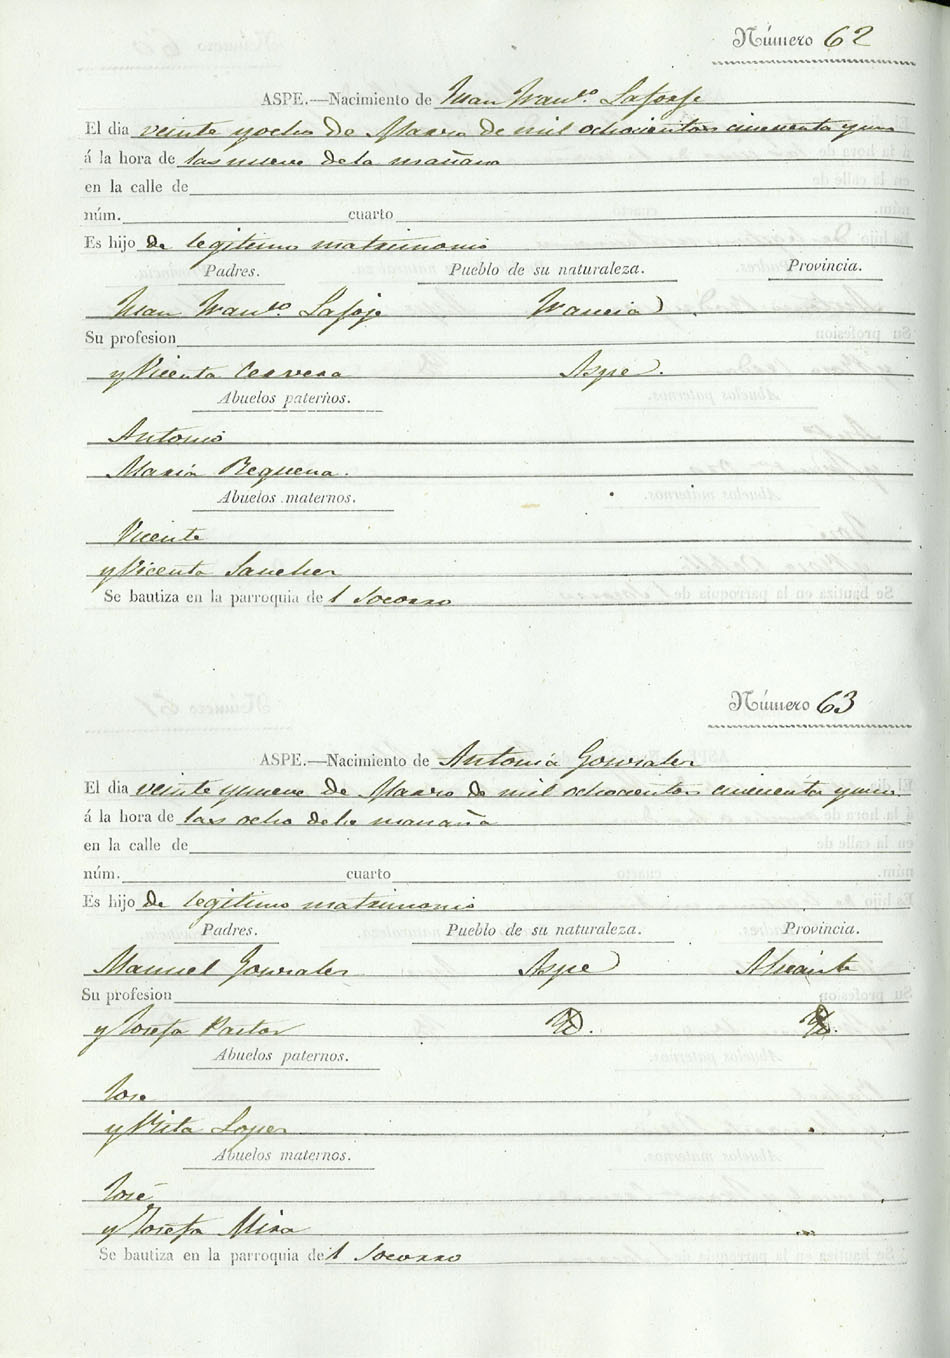 Número 62
ASPE.—Nacimiento de Juan Franco. Laforje
El dia veinte y ocho de Marzo de mil ochocientos cincuenta y uno
á la hora de las nueve de la mañana
en la calle de
núm. cuarto
Es hijo de legitimo matrimonio
Padres. Pueblo de su naturaleza. Provincia.
Juan Franco. Laforje Francia
Su profesion
y Vicenta Cervera Aspe.
Abuelos paternos.
Antonio
Maria Requena.
Abuelos maternos.
Vicente
y Vicenta Sanchez
Se bautiza en la parroquia del Socorro
Número 63
ASPE.—Nacimiento de Antonia Gonzalez
El dia veinte y nueve de Marzo de mil ochocientos cincuenta y uno
á la hora de las ocho de la mañana
en la calle de
núm. cuarto
Es hijo de legitimo matrimonio
Padres. Pueblo de su naturaleza. Provincia.
Manuel Gonzalez Aspe Alicante
Su profesion
y Josefa Pastor
Abuelos paternos.
Jose
y Rita Lopez
Abuelos maternos.
José
y Josefa Mira
Se bautiza en la parroquia del Socorro